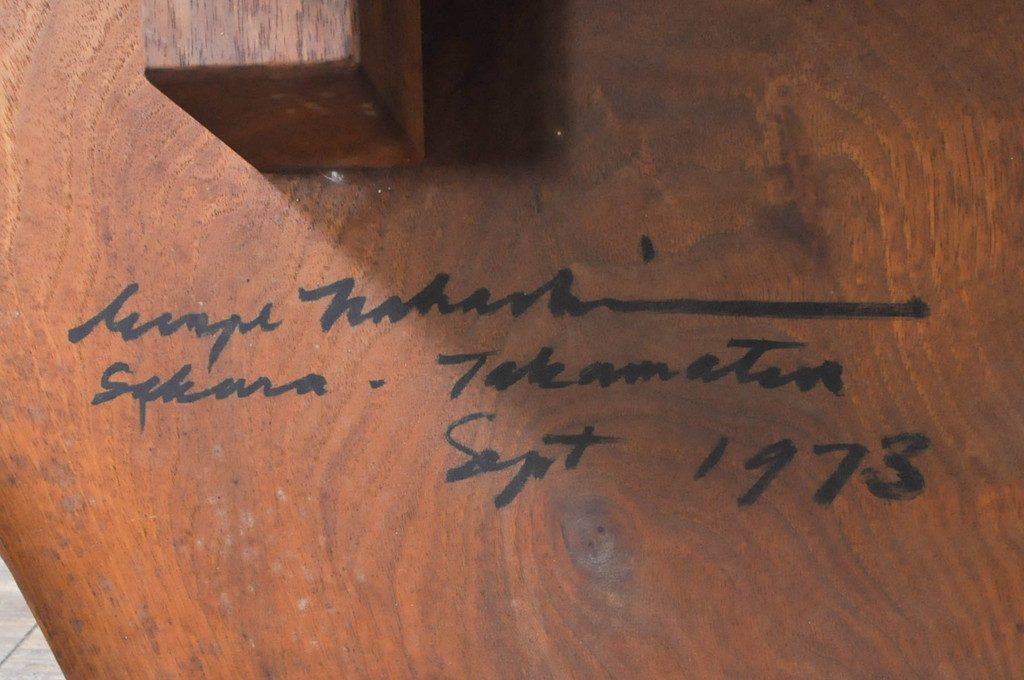 George Nakashima
Sakura - Takamatsu
Sept 1973